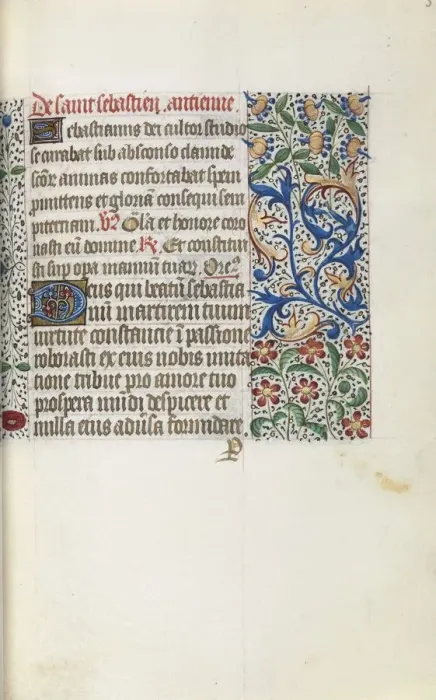 De saint sebastien. antienne.
Sebastianus dei cultor studio
se curabat sub absconso clamide
scōr animas confortabat spem
promittens et gloriā consequi sem
piternam. V℣ Glā et honore coro
nasti eū domine. R℣ Et constitui
sti sup opa manuū tuar. Orō
Deus qui beatū sebastia
nū martirem tuum
virtute constancie ī passione
roborasti ex eius nobis imita
tione tribue pro amore tuo
prospera mūdi despicere et
nulla eius adūsa formidare
P